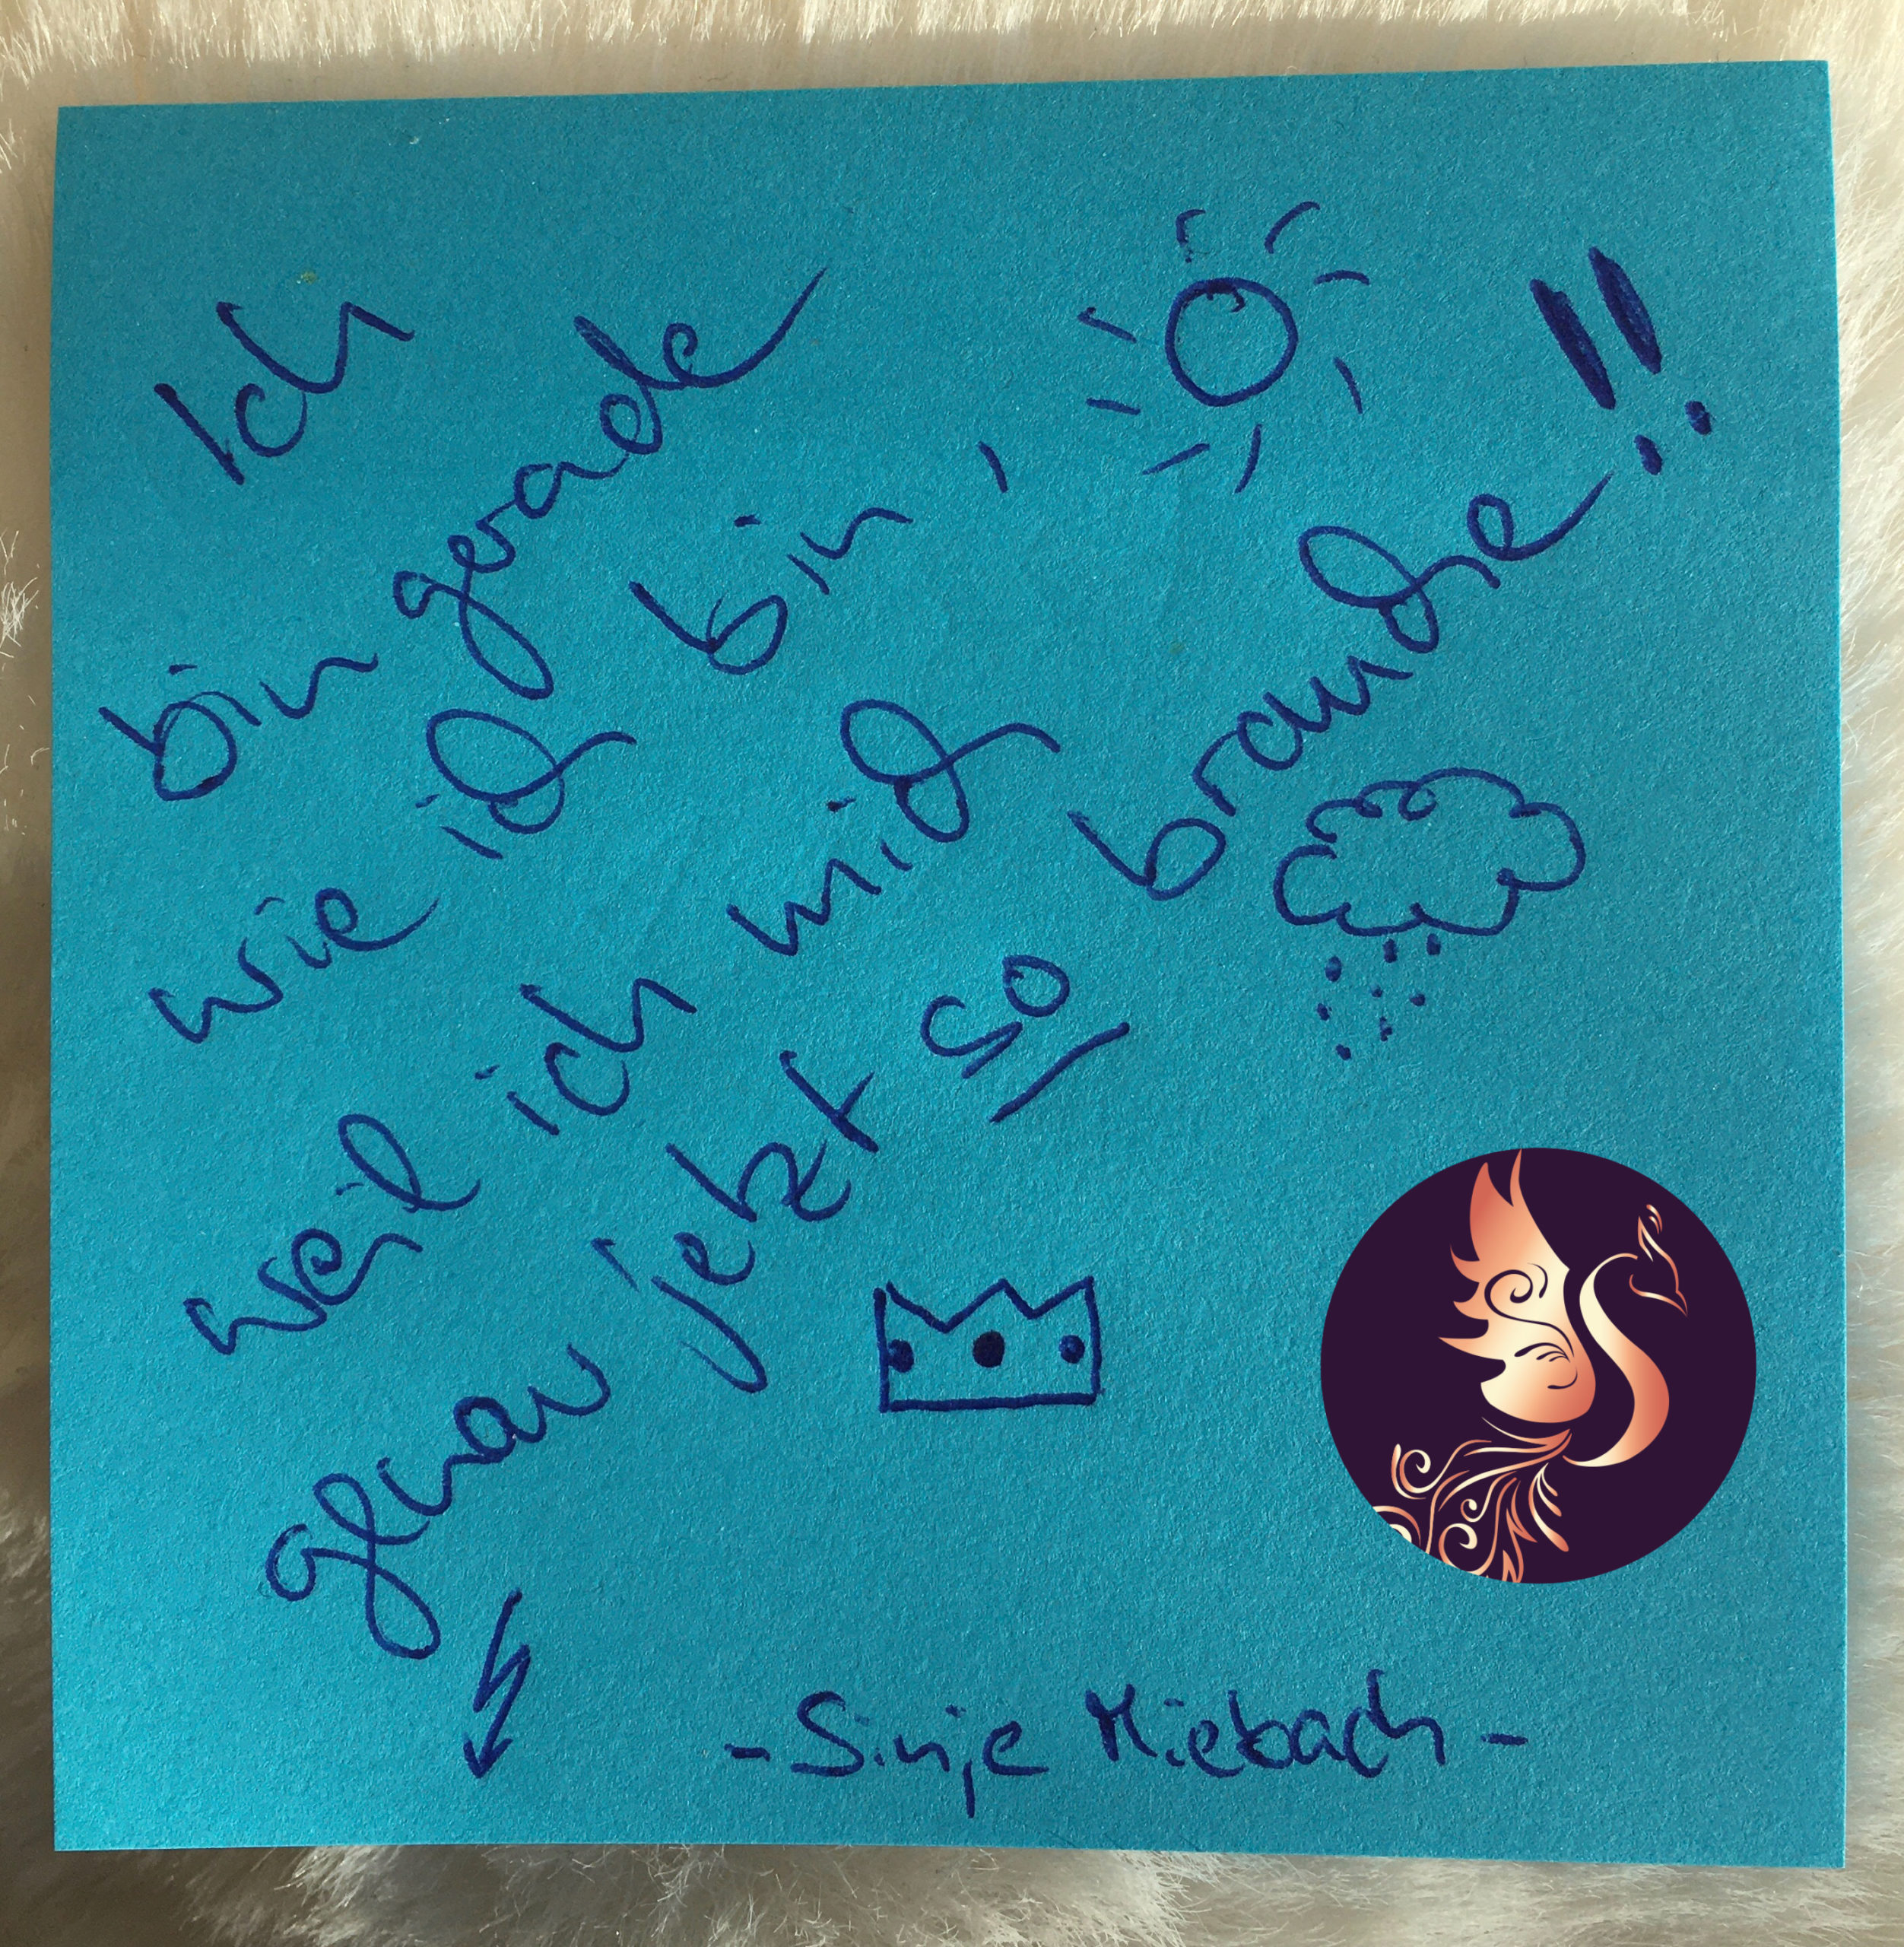 Ich
bin gerade
wie ich bin,
weil ich mich
genau jetzt so brauche!!
- Sinje Miebach -